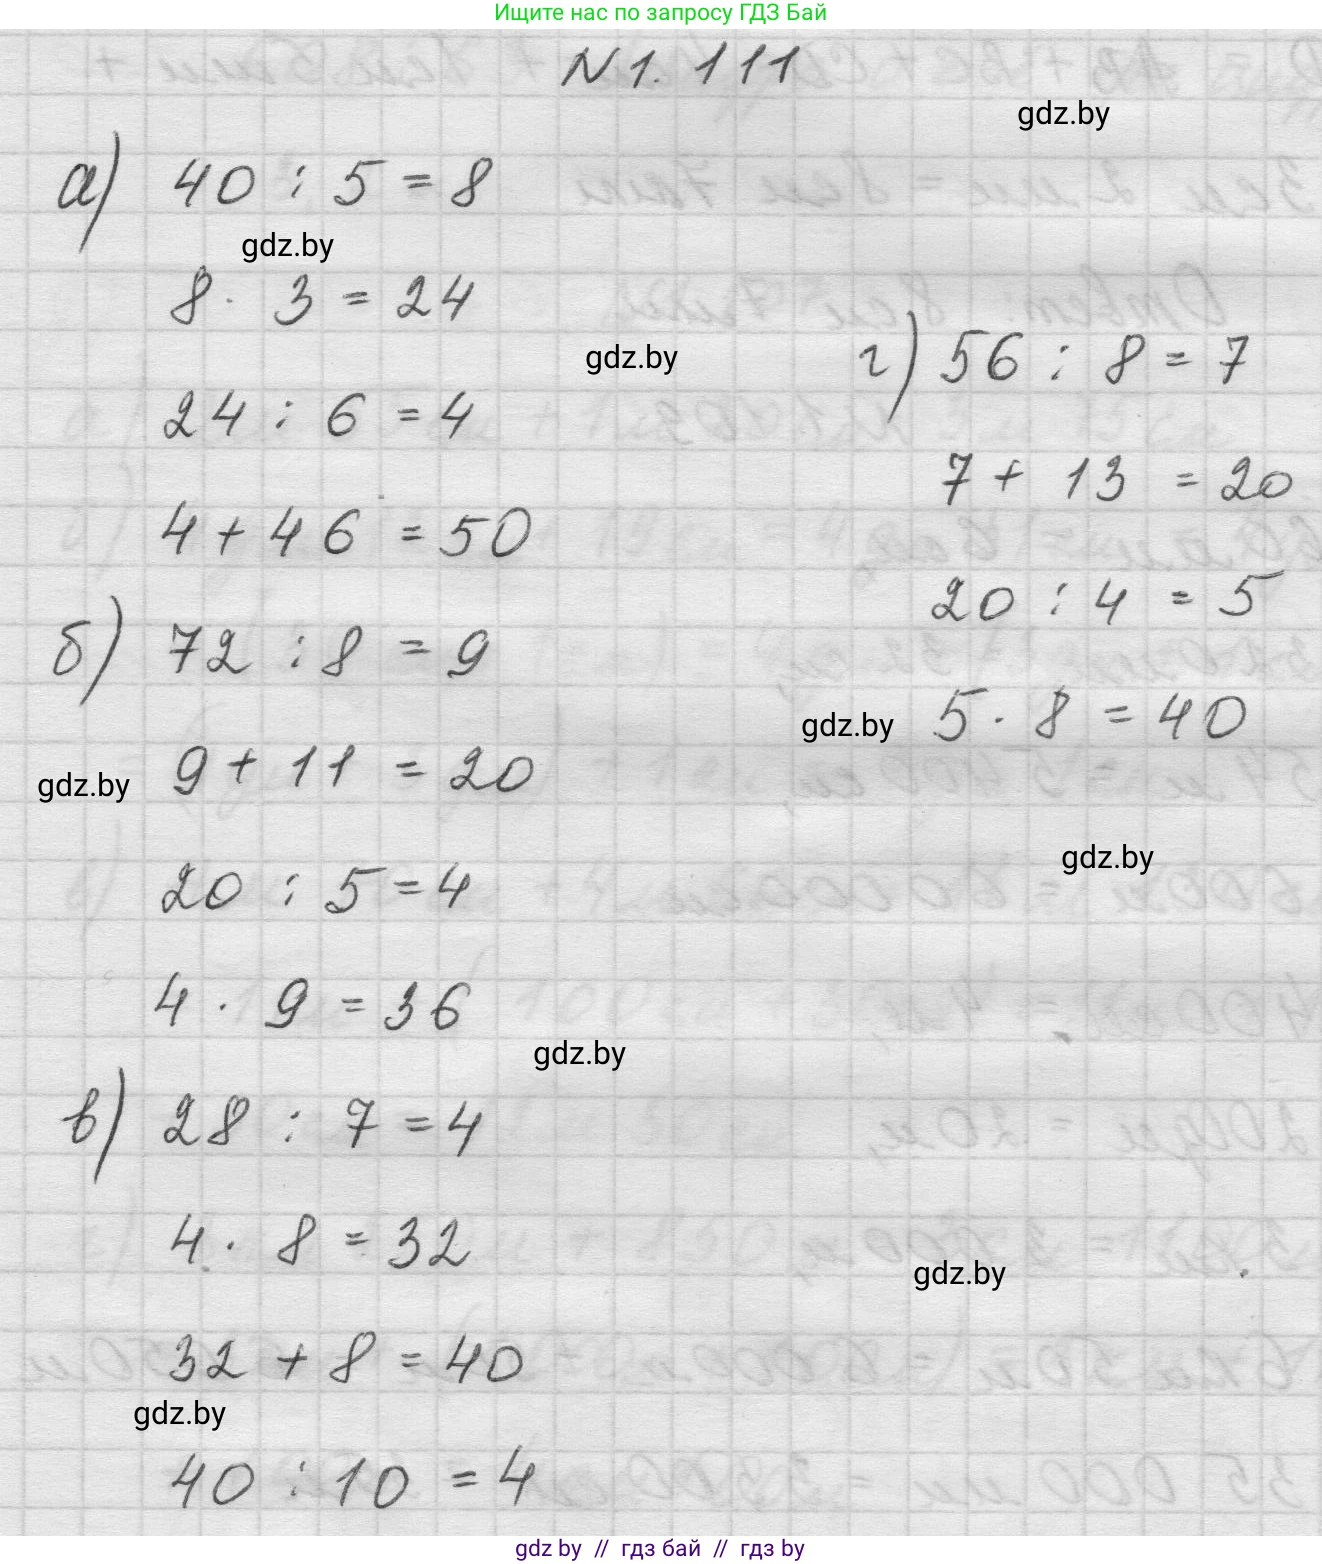 Ищите нас по запросу ГДЗ Бай
N 1. 111
gdz.by
а) 40 : 5 = 8
gdz.by
8 · 3 = 24
gdz.by
24 : 6 = 4
4 + 46 = 50
б) 72 : 8 = 9
9 + 11 = 20
gdz.by
20 : 5 = 4
4 · 9 = 36
gdz.by
в) 28 : 7 = 4
4 · 8 = 32
32 + 8 = 40
gdz.by
40 : 10 = 4
г) 56 : 8 = 7
7 + 13 = 20
20 : 4 = 5
gdz.by
5 · 8 = 40
gdz.by
gdz.by
gdz by // гдз бай // гдз by